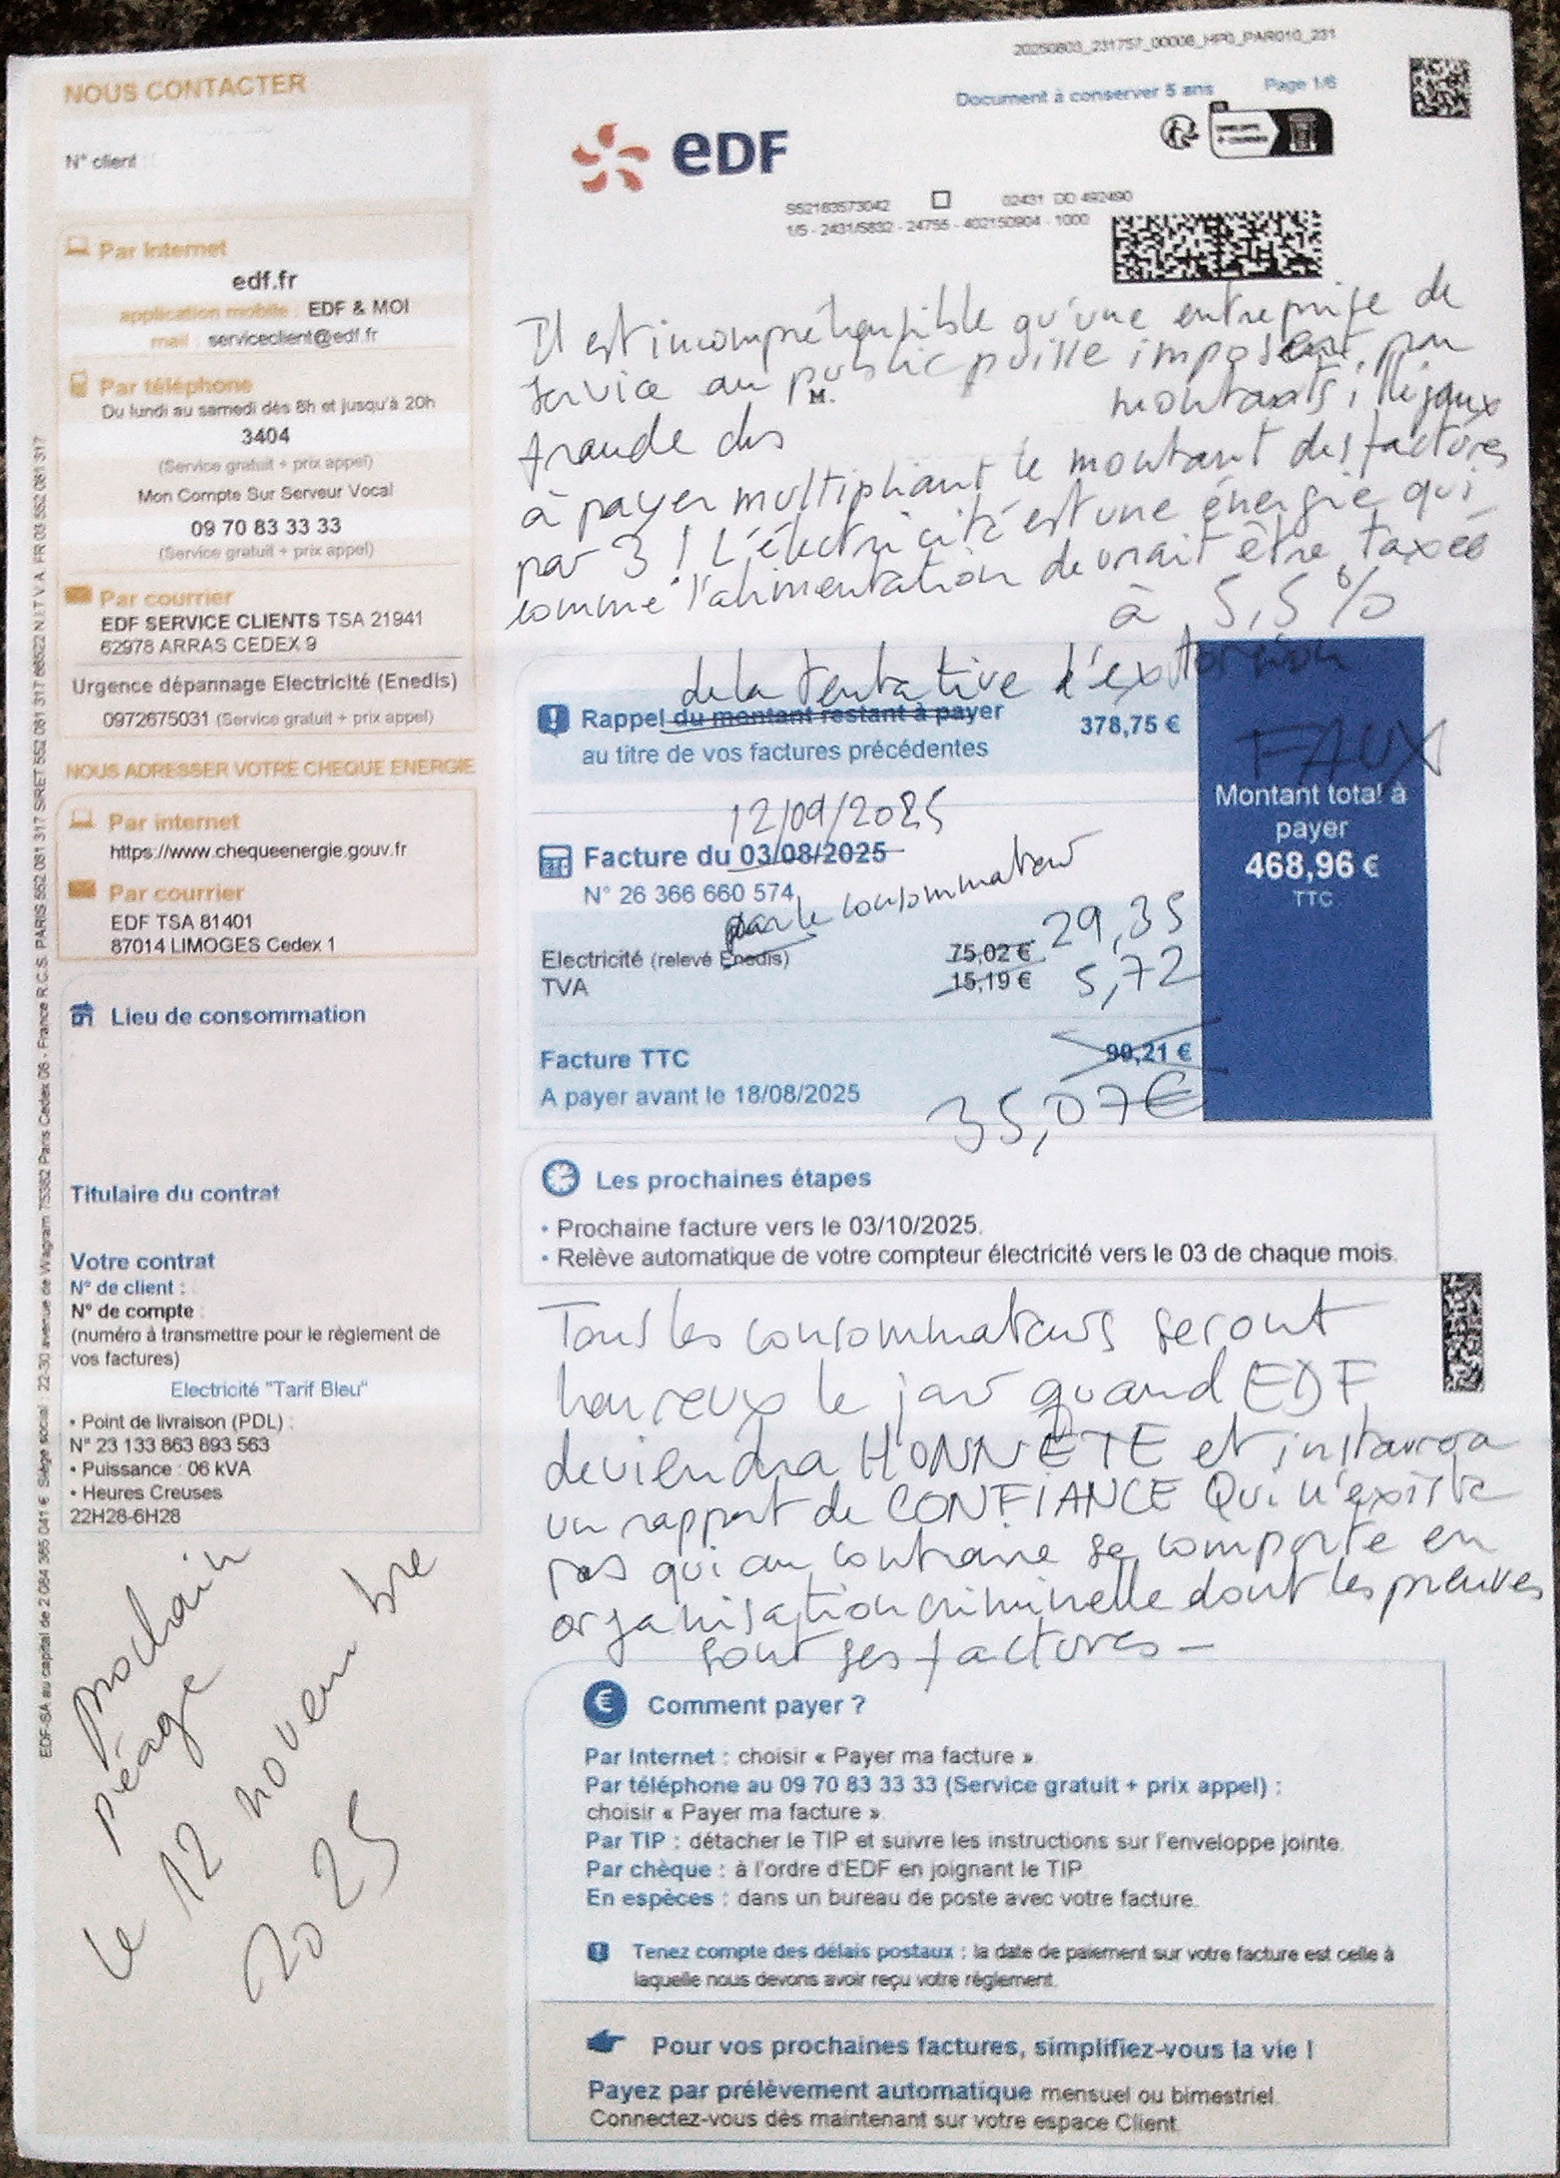 20250803_231757_00006_HP0_PAR010_231
Document à conserver 5 ans Page 1/6
NOUS CONTACTER
N° client :
Par Internet
edf.fr
application mobile : EDF & MOI
mail : serviceclient@edf.fr
Par téléphone
Du lundi au samedi dès 8h et jusqu'à 20h
3404
(Service gratuit + prix appel)
Mon Compte Sur Serveur Vocal
09 70 83 33 33
(Service gratuit + prix appel)
Par courrier
EDF SERVICE CLIENTS TSA 21941
62978 ARRAS CEDEX 9
Urgence dépannage Electricité (Enedis)
0972675031 (Service gratuit + prix appel)
NOUS ADRESSER VOTRE CHEQUE ENERGIE
Par internet
https://www.chequeenergie.gouv.fr
Par courrier
EDF TSA 81401
87014 LIMOGES Cedex 1
Lieu de consommation
Titulaire du contrat
Votre contrat
N° de client :
N° de compte :
(numéro à transmettre pour le règlement de
vos factures)
Electricité "Tarif Bleu"
• Point de livraison (PDL) :
N° 23 133 863 893 563
• Puissance : 06 kVA
• Heures Creuses
22H28-6H28
prochain
piéage
le 12 novembre
2025
EDF-SA au capital de 2 084 365 041 € Siège social : 22-30 avenue de Wagram 75382 Paris Cedex 08 - France R.C.S. PARIS 552 081 317 SIRET 552 081 317 66522 N.I.T.V.A. FR 03 552 081 317
eDF
S52183573042 02431 DD 492490
1/5 - 2431/5832 - 24755 - 402150904 - 1000
Il est incompréhensible qu'une entreprise de
service au public puisse imposant, par
M.
fraude des montants illégaux
à payer multipliant le montant des factures
par 3 ! L'électricité est une énergie qui
comme l'alimentation devrait être taxée
à 5,5%
de la tentative d'extorsion
Rappel du montant restant à payer 378,75 €
au titre de vos factures précédentes
FAUX
Montant total à
payer
468,96 €
TTC
12/09/2025
Facture du 03/08/2025
N° 26 366 660 574
par le consommateur
Electricité (relevé Enedis) 75,02 € 29,35
TVA 15,19 € 5,72
Facture TTC 90,21 €
A payer avant le 18/08/2025 35,07€
Les prochaines étapes
• Prochaine facture vers le 03/10/2025.
• Relève automatique de votre compteur électricité vers le 03 de chaque mois.
Tous les consommateurs seront
heureux le jour quand EDF
deviendra HONNÊTE et instaurera
un rapport de CONFIANCE Qui n'existe
pas qui au contraire se comporte en
organisation criminelle dont les preuves
sont ses factures -
Comment payer ?
Par Internet : choisir « Payer ma facture ».
Par téléphone au 09 70 83 33 33 (Service gratuit + prix appel) :
choisir « Payer ma facture ».
Par TIP : détacher le TIP et suivre les instructions sur l'enveloppe jointe.
Par chèque : à l'ordre d'EDF en joignant le TIP.
En espèces : dans un bureau de poste avec votre facture.
Tenez compte des délais postaux : la date de paiement sur votre facture est celle à
laquelle nous devons avoir reçu votre règlement.
Pour vos prochaines factures, simplifiez-vous la vie !
Payez par prélèvement automatique mensuel ou bimestriel.
Connectez-vous dès maintenant sur votre espace Client.